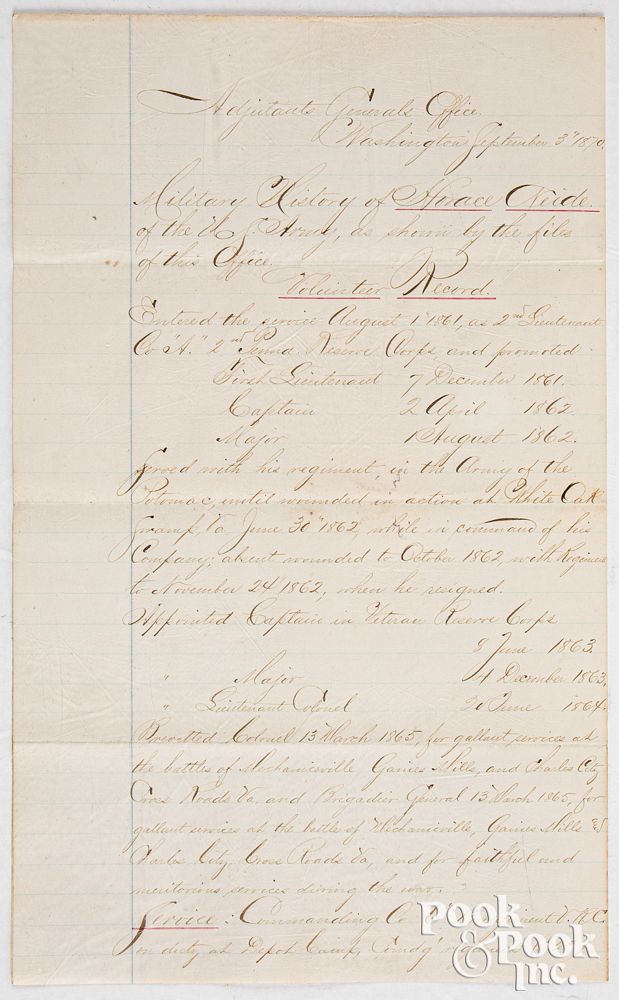 Adjutants Generals Office,
Washington September 3" 1870.
Military History of Horace Neide.
of the U S Army, as shown by the files
of this Office.
Volunteer Record.
Entered the service August 1" 1861, as 2nd Lieutenant
Co "A." 2nd Penna. Reserve Corps, and promoted
First Lieutenant 7 December 1861.
Captain 2 April 1862.
Major 1 August 1862.
Served with his regiment, in the Army of the
Potomac, until wounded in action at White Oak
Swamp, Va June 30" 1862, while in command of his
Company; absent wounded to October 1862, with Regiment
to November 24 1862, when he resigned.
Appointed Captain in Veteran Reserve Corps
8 June 1863.
" Major 4 December 1863,
" Lieutenant Colonel 20 June 1864.
Brevetted Colonel 13 March 1865, for gallant services at
the battles of Mechanicsville Gaines Mills, and Charles City
Cross Roads Va. and Brigadier General 13 March 1865, for
gallant services at the battle of Mechanicsville, Gaines Mills &
Charles City Cross Roads Va, and for faithful and
meritorious services during the war.
Service: Commanding Co V.R.C.
on duty at Depot Camp, Comdg
POOK
& POOK
Inc.